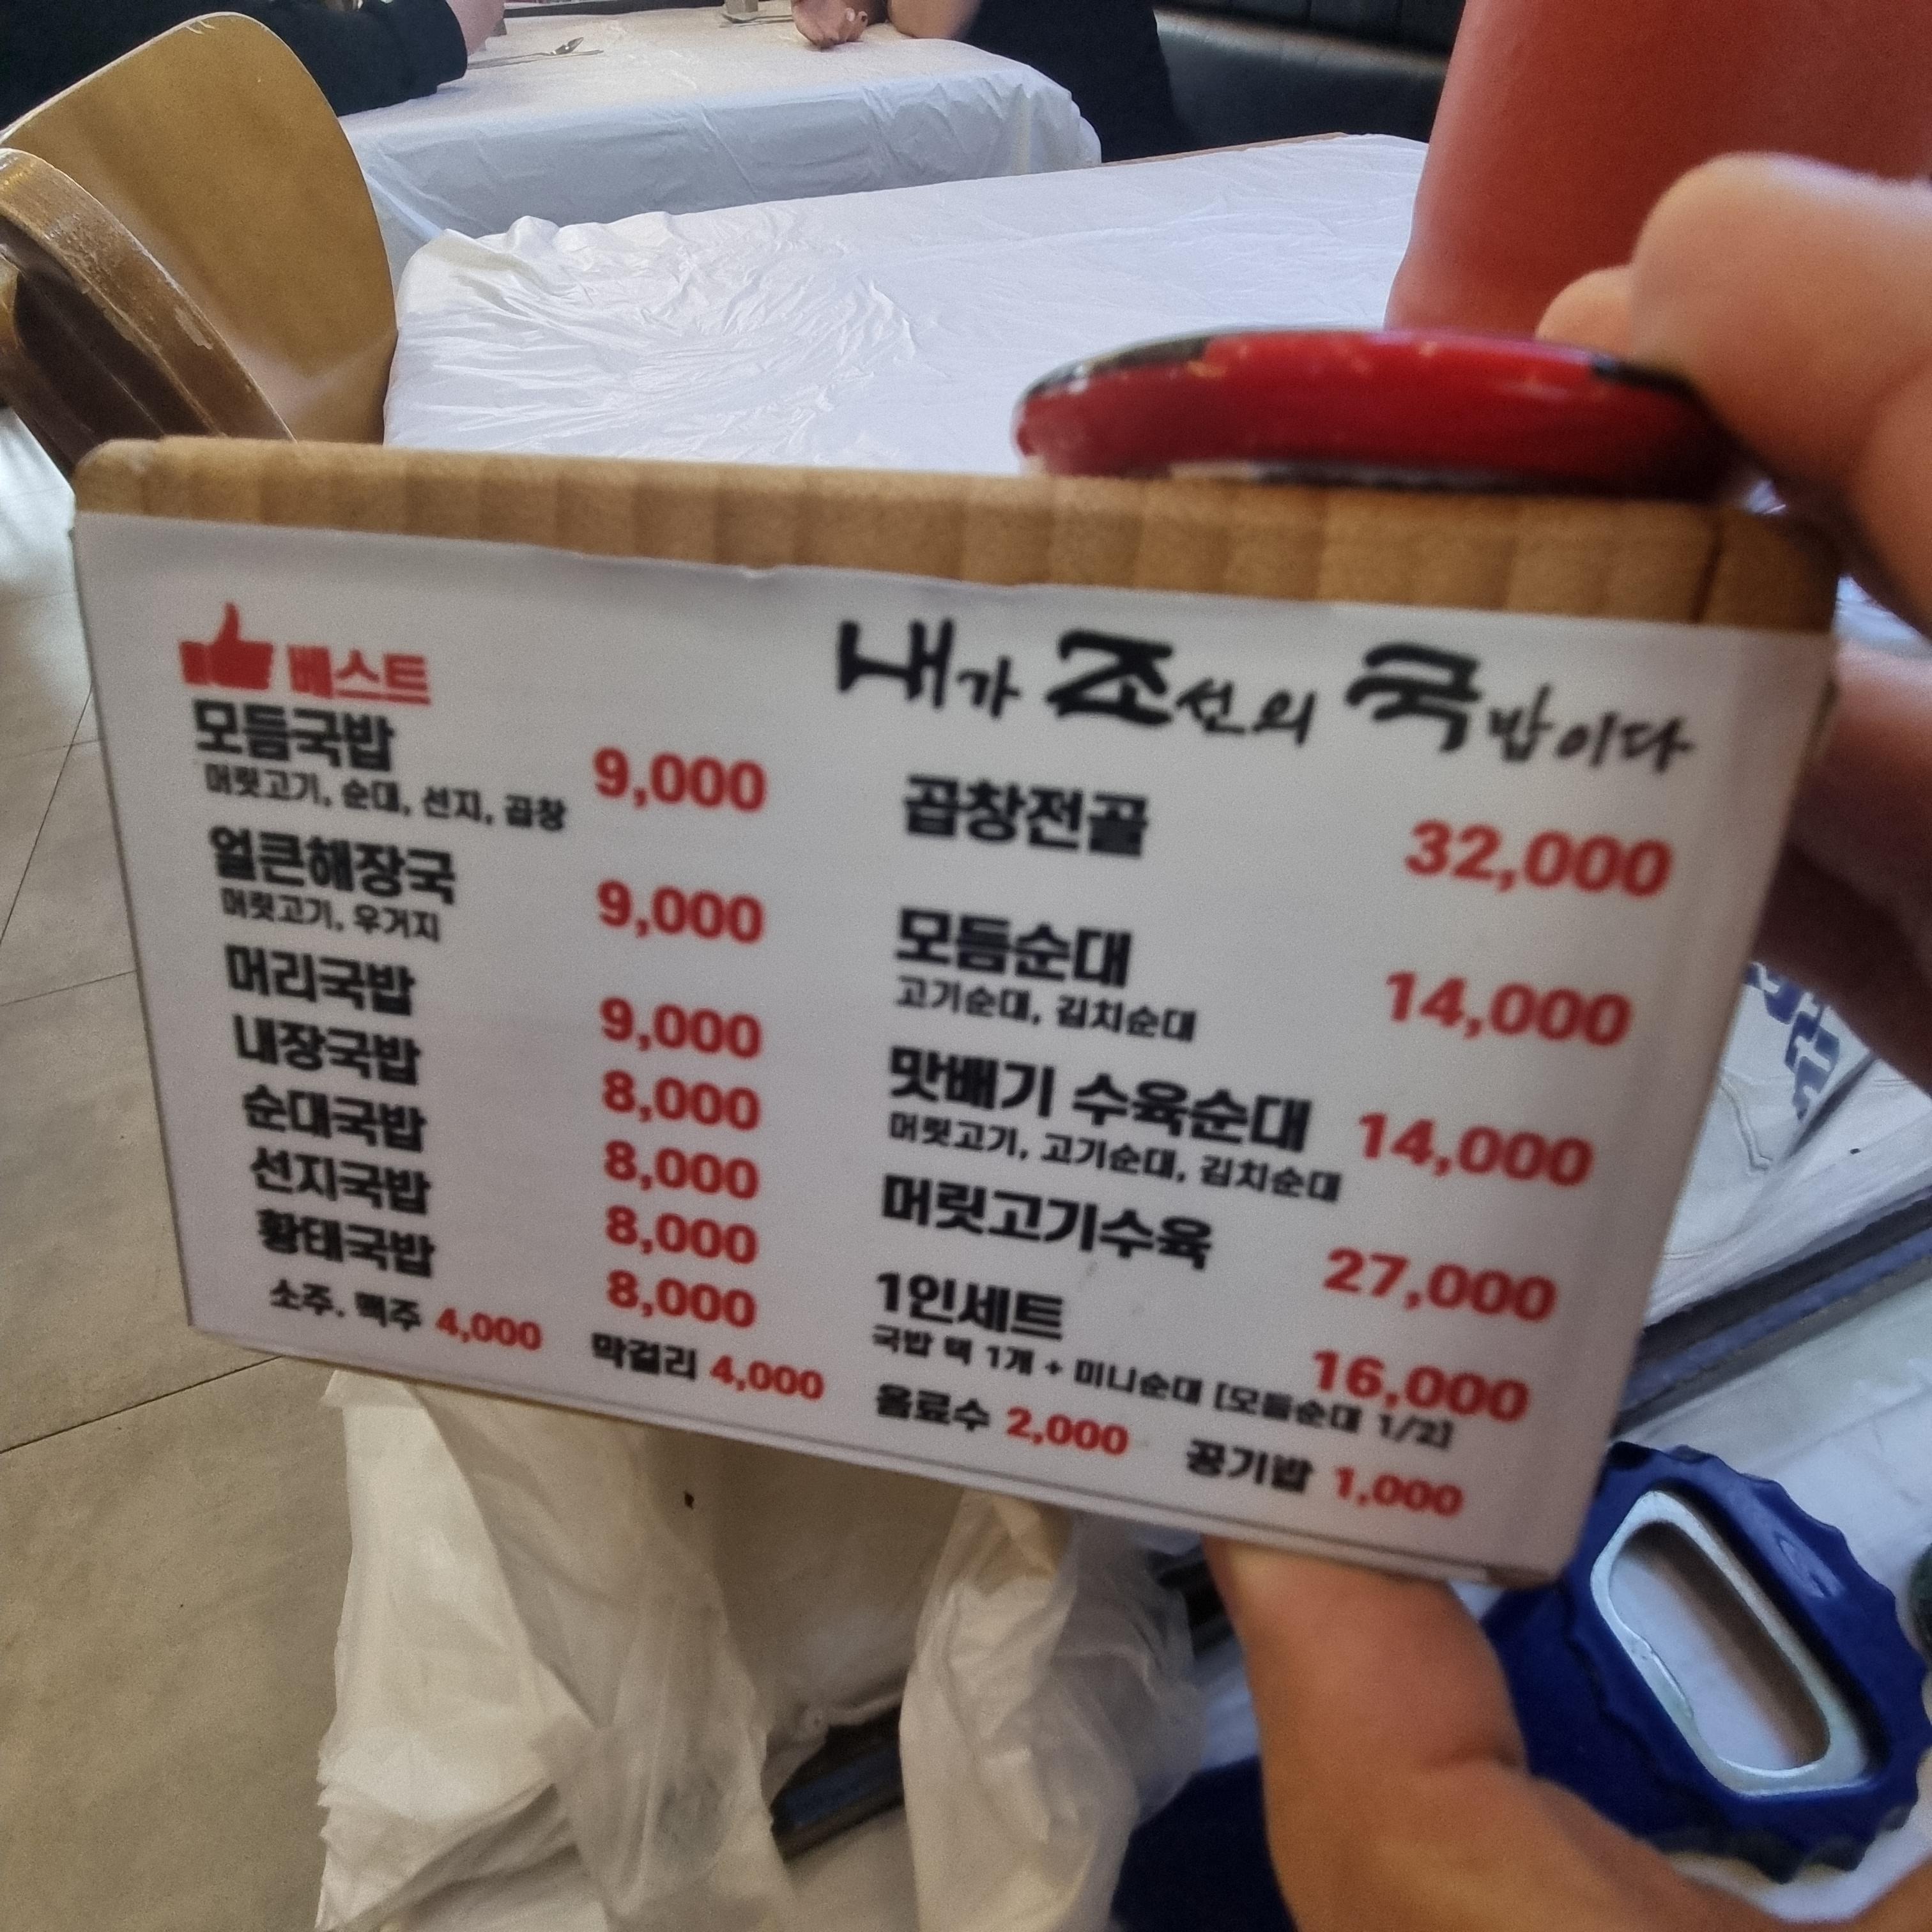 베스트
모듬국밥 9,000
머릿고기, 순대, 선지, 곱창
얼큰해장국 9,000
머릿고기, 우거지
머리국밥 9,000
내장국밥 8,000
순대국밥 8,000
선지국밥 8,000
황태국밥 8,000
소주. 맥주 4,000 막걸리 4,000
내가 조선의 국밥이다
곱창전골 32,000
모듬순대 14,000
고기순대, 김치순대
맛배기 수육순대 14,000
머릿고기, 고기순대, 김치순대
머릿고기수육 27,000
1인세트 16,000
국밥 택 1개 + 미니순대 [모듬순대 1/2]
음료수 2,000 공기밥 1,000